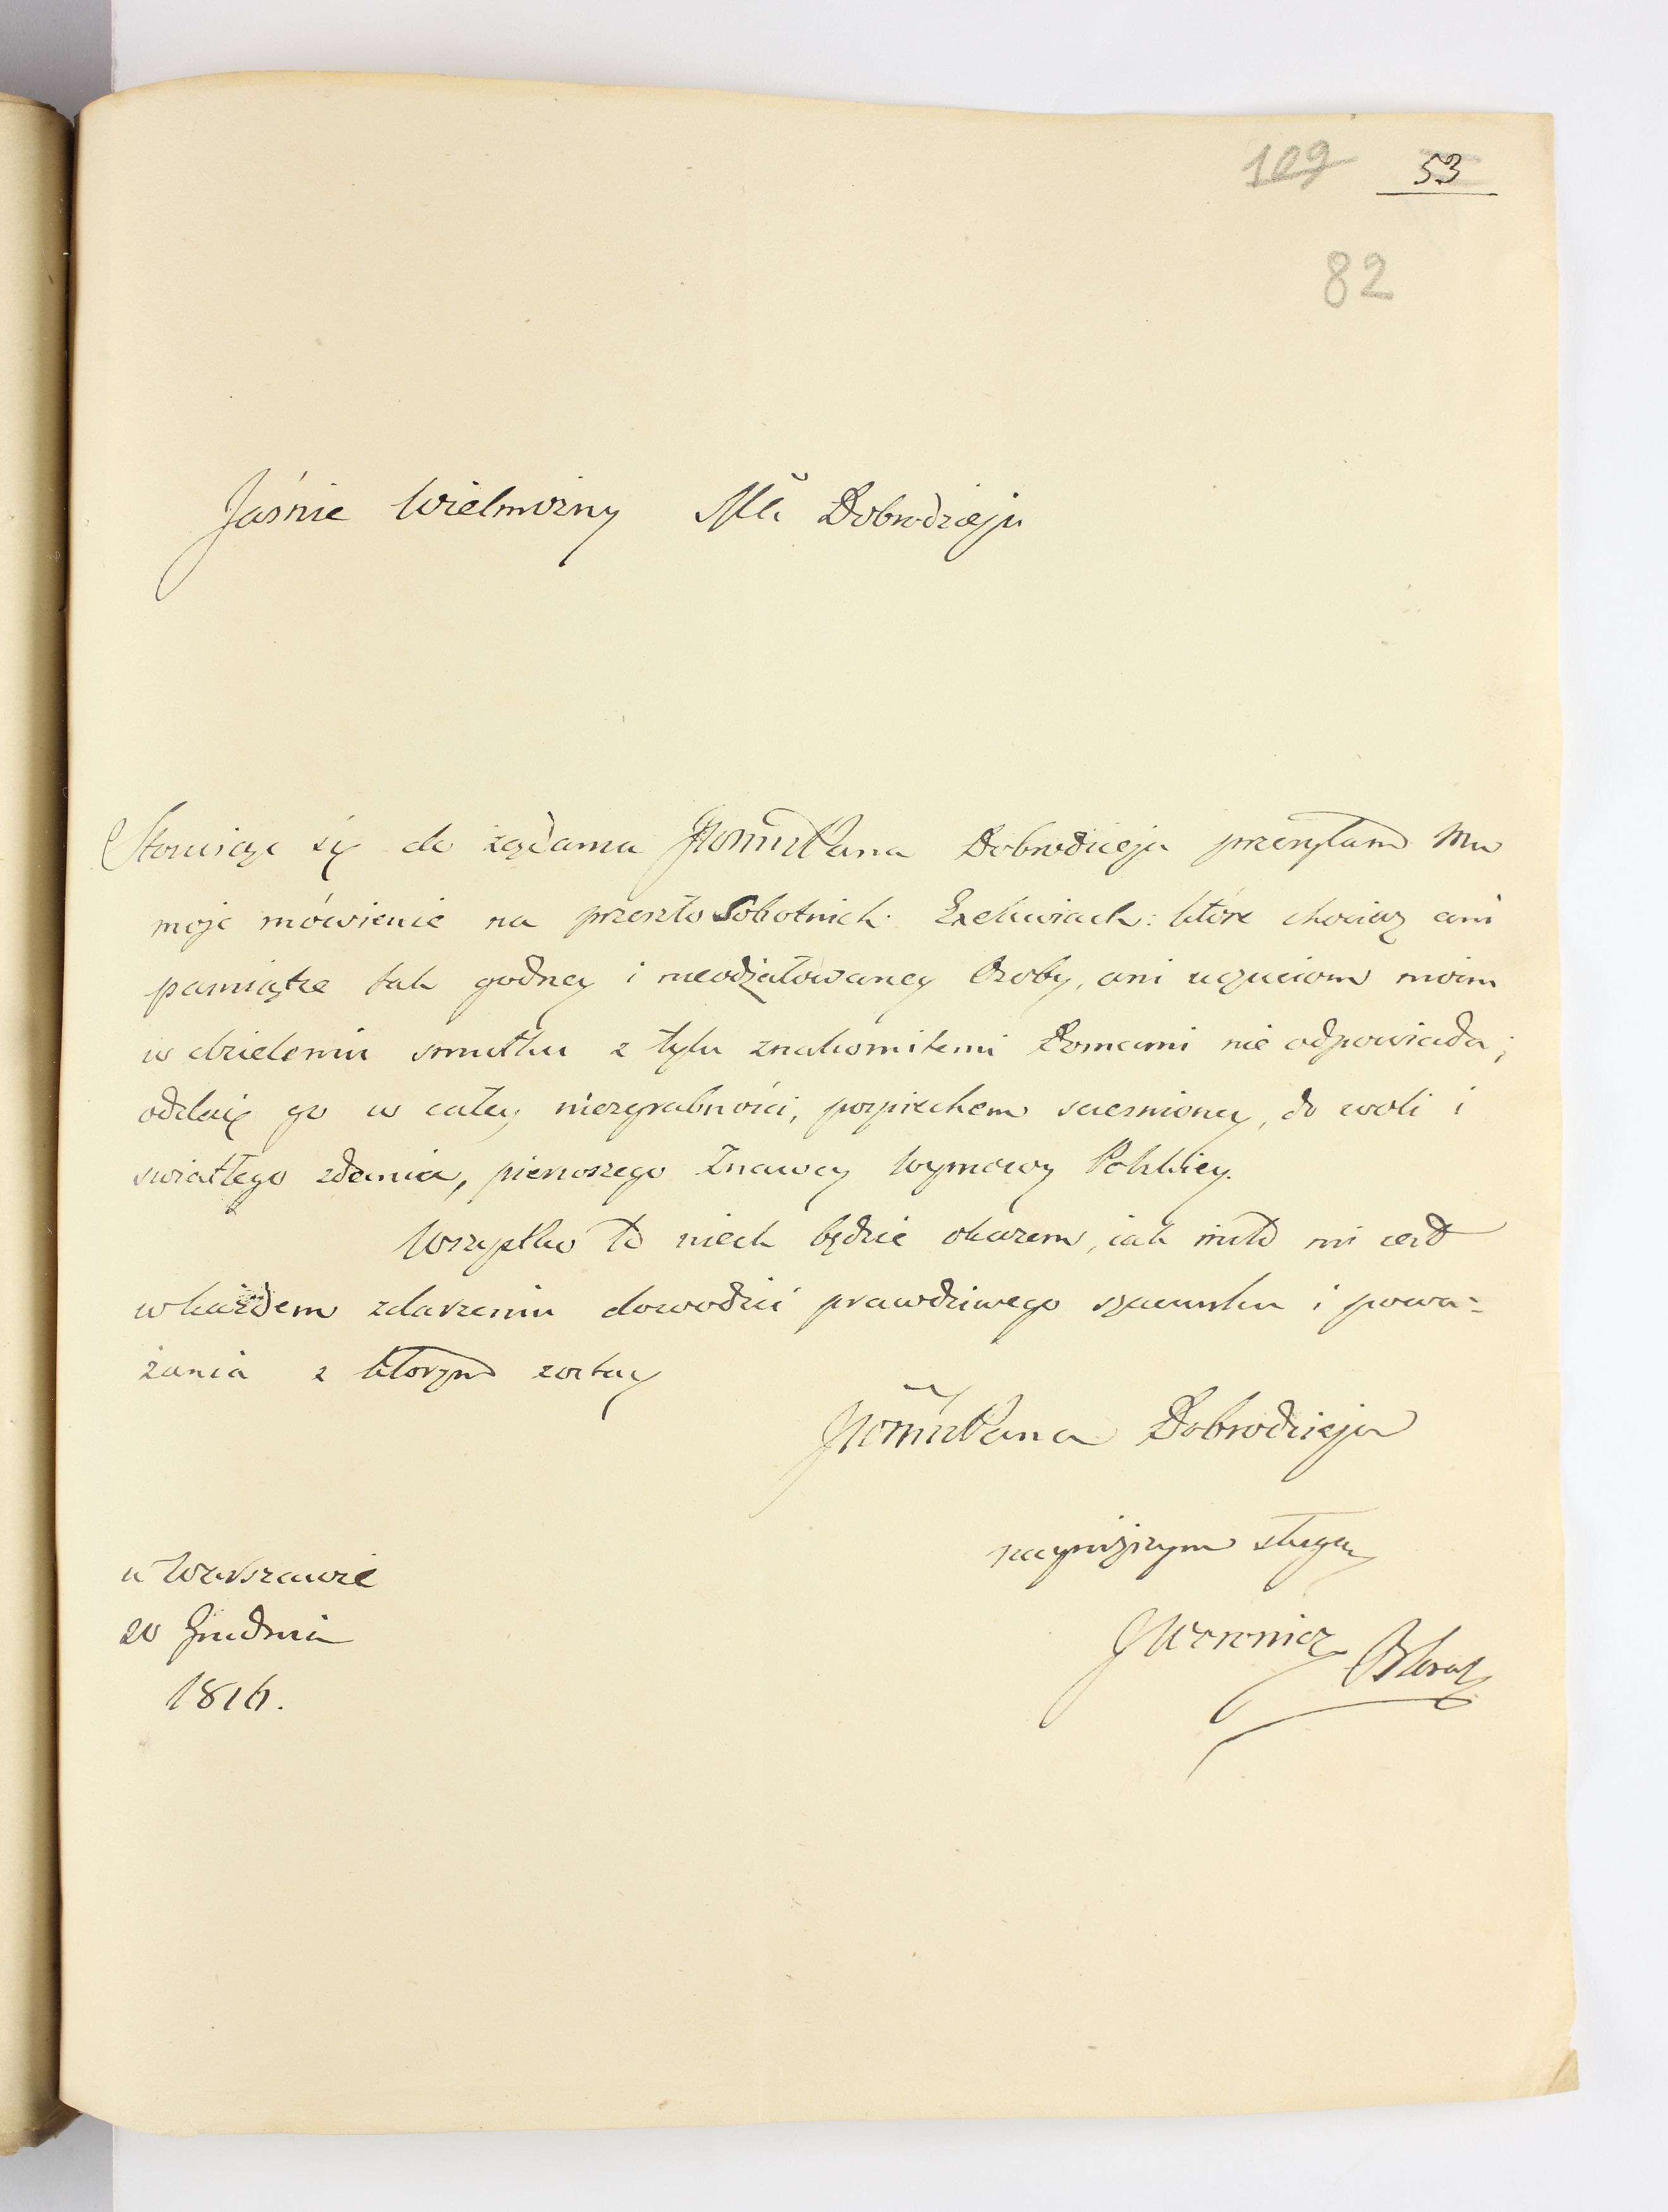 109 53
82
Jaśnie Wielmożny Mci Dobrodzieju
Stosuiąc się do żądania JWMci Pana Dobrodzieja przesyłam Mu
moje mówienie na przeszło Sobotnich Exekwiach: które chociaż ani
pamiątce tak godney i nieodżałowaney Osoby, ani uczuciom moim
w dzieleniu smutku z tylu znakomitemi Domami nie odpowiada;
oddaię go w całey niezgrabności, pospiechem scieśnioney, do woli i
swiatłego zdania, pierwszego Znawcy Wymowy Polskiey.
Wszystko to niech będzie okazem, iak miło mi iest
w każdem zdarzeniu dowodzić prawdziwego szacunku i powa=
żania z ktorym zostaię
JWMci Pana Dobrodzieja
nayniższym sługą
JWoronicz
w Warszawie
20 Grudnia
1816.